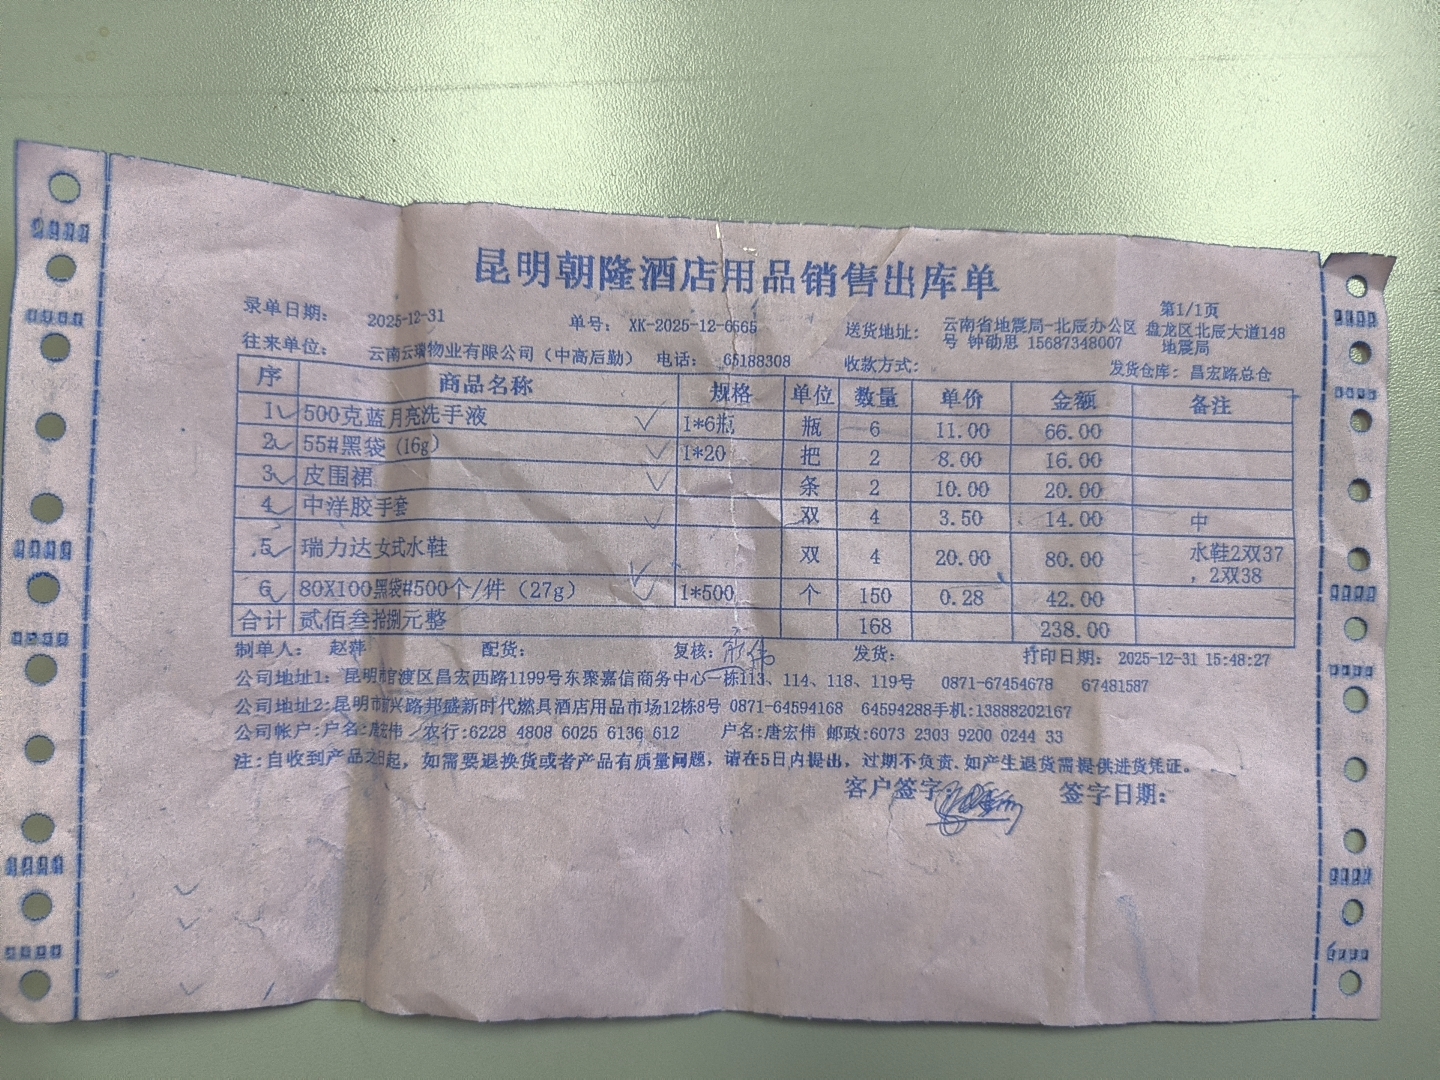 昆明朝隆酒店用品销售出库单
第1/1页
录单日期： 2025-12-31 单号： XK-2025-12-6665 送货地址： 云南省地震局-北辰办公区 盘龙区北辰大道148
号 钟劭思 15687348007 地震局
往来单位： 云南云瑞物业有限公司（中高后勤） 电话： 65188308 收款方式： 发货仓库： 昌宏路总仓
序 商品名称 规格 单位 数量 单价 金额 备注
1 500克蓝月亮洗手液 1*6瓶 瓶 6 11.00 66.00
2 55#黑袋（16g） 1*20 把 2 8.00 16.00
3 皮围裙 条 2 10.00 20.00
4 中洋胶手套 双 4 3.50 14.00 中
5 瑞力达女式水鞋 双 4 20.00 80.00 水鞋2双37
，2双38
6 80X100黑袋#500个/件（27g） 1*500 个 150 0.28 42.00
合计 贰佰叁拾捌元整 168 238.00
制单人： 赵萍 配货： 复核： 发货： 打印日期： 2025-12-31 15:48:27
公司地址1： 昆明市官渡区昌宏西路1199号东聚嘉信商务中心一栋113、114、118、119号 0871-67454678 67481587
公司地址2：昆明市前兴路邦盛新时代燃具酒店用品市场12栋8号 0871-64594168 64594288手机:13888202167
公司帐户:户名:唐宏伟 农行:6228 4808 6025 6136 612 户名:唐宏伟 邮政:6073 2303 9200 0244 33
注:自收到产品之日起，如需要退换货或者产品有质量问题，请在5日内提出，过期不负责.如产生退货需提供进货凭证。
客户签字： 签字日期：